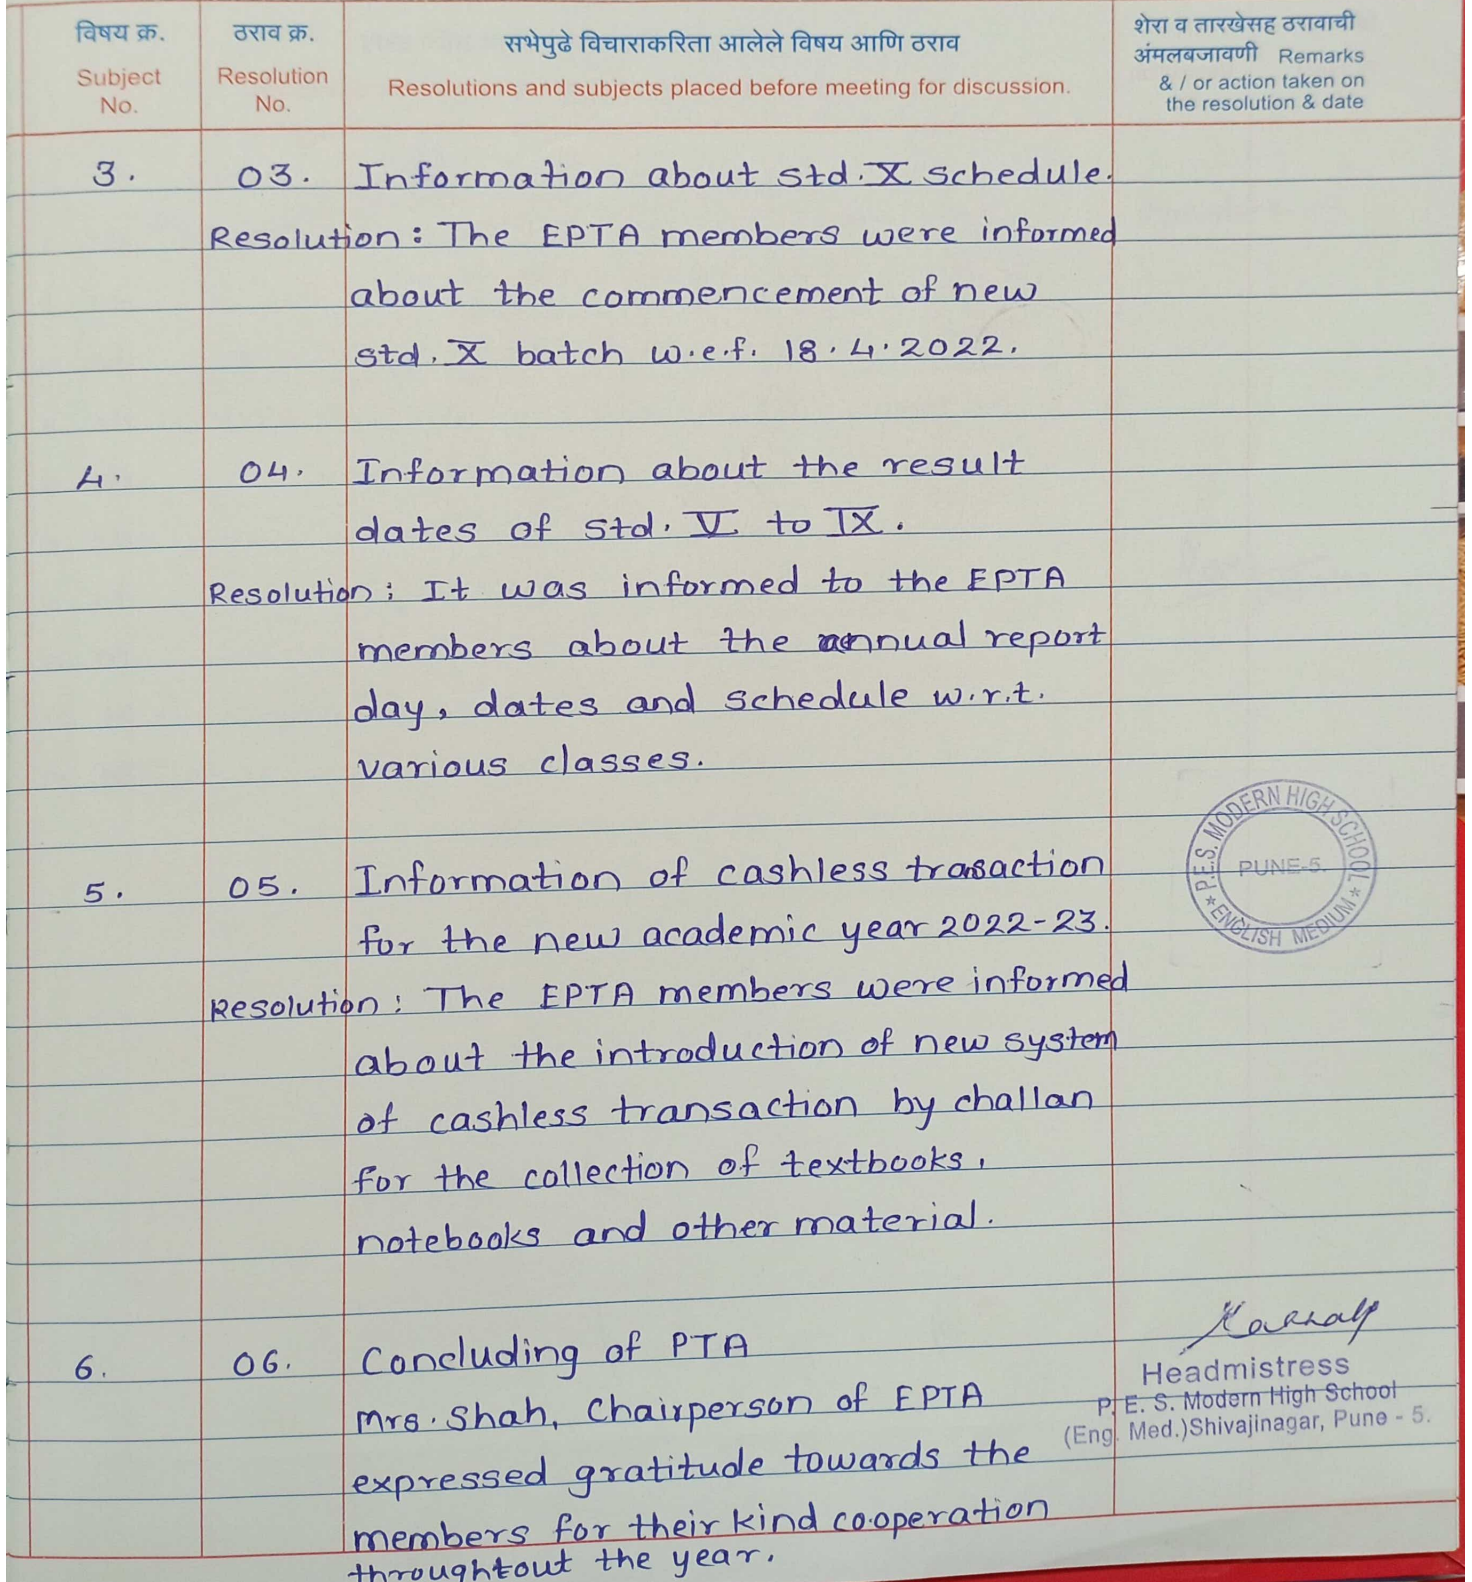 विषय क्र.
Subject
No.
ठराव क्र.
Resolution
No.
सभेपुढे विचाराकरिता आलेले विषय आणि ठराव
Resolutions and subjects placed before meeting for discussion.
शेरा व तारखेसह ठरावाची
अंमलबजावणी Remarks
& / or action taken on
the resolution & date
3. 03. Information about std. X schedule.
Resolution: The EPTA members were informed
about the commencement of new
std. X batch w.e.f. 18.4.2022.
4. 04. Information about the result
dates of std. V to IX.
Resolution: It was informed to the EPTA
members about the annual report
day, dates and schedule w.r.t.
various classes.
5. 05. Information of cashless trasaction
for the new academic year 2022-23.
Resolution: The EPTA members were informed
about the introduction of new system
of cashless transaction by challan
for the collection of textbooks,
notebooks and other material.
P.E.S. MODERN HIGH SCHOOL
PUNE-5.
* ENGLISH MEDIUM *
6. 06. Concluding of PTA
Mrs. Shah, Chairperson of EPTA
expressed gratitude towards the
members for their kind co.operation
throughtout the year.
Headmistress
P. E. S. Modern High School
(Eng. Med.) Shivajinagar, Pune - 5.